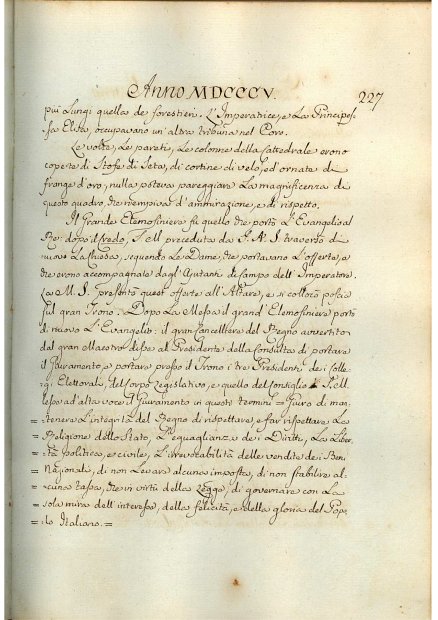 Anno MDCCCV.
227
più Lungi quella de' forestieri. L'Imperatrice, e La Principes-
sa Elisa, occupavano un'altra tribuna nel Coro.
Le volte, Le pareti, Le colonne della Cattedrale erano
coperte di Stofe di Seta, di cortine di velo, ed ornate di
frange d'oro, nulla poteva pareggiare La magnificenza di
questo quadro, che riempiva d'ammirazione, e di rispetto.
Il Grande Elemosiniere fù quello che portò L'Evangelio al
Re: dopo il Credo, S. M. preceduta da S. A. I. traversò di
nuovo La Chiesa, seguendo Le Dame, che portavano L'offerte, e
che erano accompagnate dagl'Ajutanti di Campo dell'Imperatore.
La M. S. presentò quest'offerte all'Altare, e si collocò poscia
sul gran Trono. Dopo La Messa il grand'Elemosiniere portò
di nuovo L'Evangelio: il gran Cancelliere del Regno avvertito
dal gran Maestro disse al Presidente della Consulta di portare
il Giuramento, e portare presso il Trono i tre Presidenti de' Colle-
gi Elettorali, del Corpo Legislativo, e quello del Consiglio
lesse ad alta voce il Giuramento in questi termini = Giuro di man-
= tenere L'integrità del Regno di rispettare, e far rispettare La
= Religione dello Stato, L'eguaglianza dei Diritti, La Liber-
= tà politica, e civile, L'irrevocabilità delle vendite dei Beni
= Nazionali, di non Levare alcuna imposta, di non stabilire al-
= cuna tassa, che in virtù della Legge, di governare con La
= sola mira dell'interesse, della felicità, e della gloria del Popo-
= lo Italiano. =